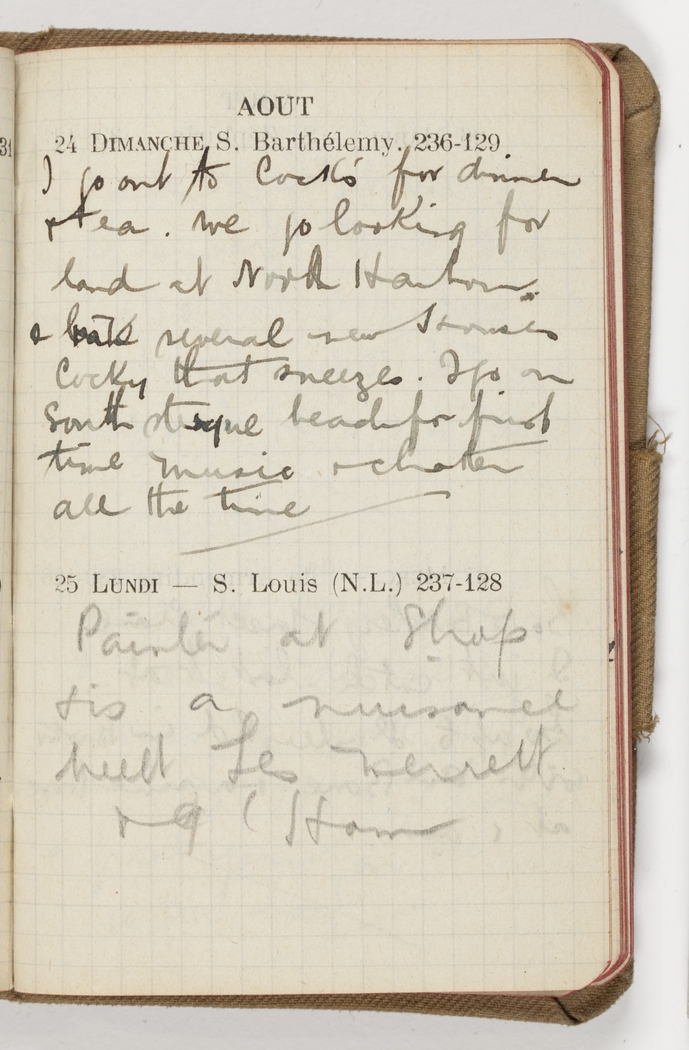 31
AOUT
24 DIMANCHE S. Barthélemy. 236-129
I go out to Cocks for dinner
& tea. We go looking for
land at North Harbour
& several new Houses
Cocky that sneezes. I go on
South beach for first
time music & chatter
all the time
25 LUNDI — S. Louis (N.L.) 237-128
Painter at Shop
& is a nuisance
meet Les Merrett
& G